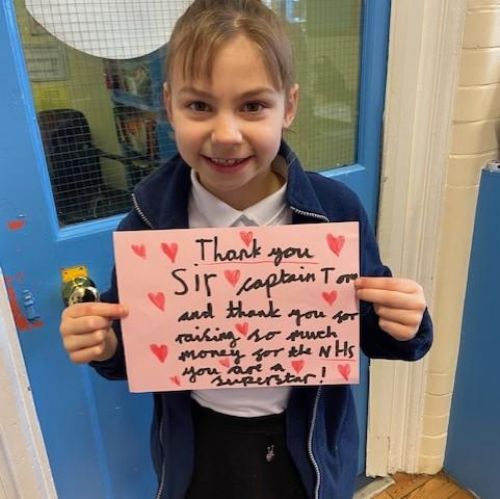 Thank you
Sir captain Tom
and thank you for
raising so much
money for the NHS
you are a
superstar!